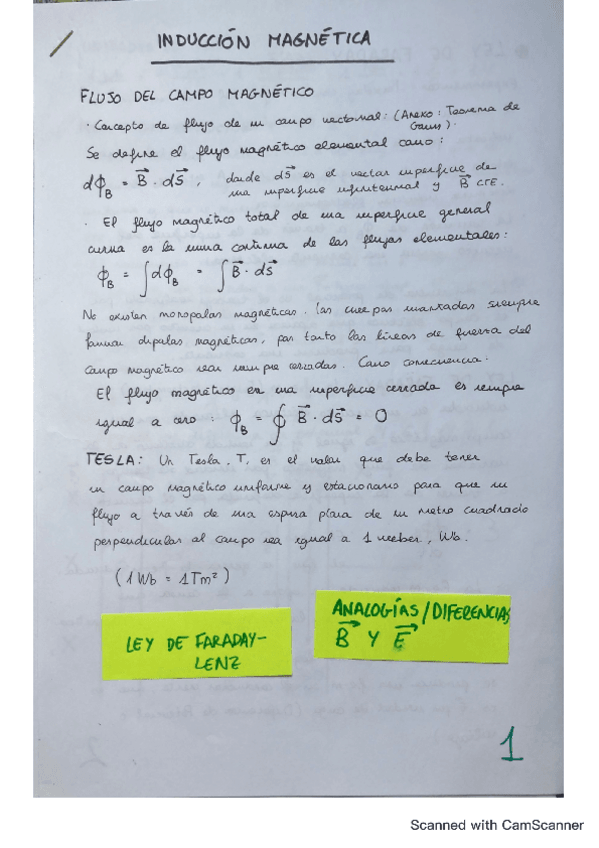 INDUCCIÓN MAGNÉTICA
FLUJO DEL CAMPO MAGNÉTICO
· Concepto de flujo de un campo vectorial: (Anexo: Teorema de
Gauss).
Se define el flujo magnético elemental como:
dϕ_B = B⃗ · dS⃗ , donde dS⃗ es el vector superficie de
una superficie infinitesimal y B⃗ CTE.
· El flujo magnético total de una superficie general
curva es la suma continua de los flujos elementales:
ϕ_B = ∫dϕ_B = ∫B⃗ · dS⃗
No existen monopolos magnéticos. Los cuerpos imantados siempre
forman dipolos magnéticos, por tanto las líneas de fuerza del
campo magnético son siempre cerradas. Como consecuencia.
El flujo magnético en una superficie cerrada es siempre
igual a cero : ϕ_B = ∮ B⃗ · dS⃗ = 0
TESLA: Un Tesla, T, es el valor que debe tener
un campo magnético uniforme y estacionario para que su
flujo a través de una espira plana de un metro cuadrado
perpendicular al campo sea igual a 1 weber, Wb.
(1Wb = 1Tm²)
LEY DE FARADAY-
LENZ
ANALOGÍAS/DIFERENCIAS
B⃗ Y E⃗
1
Scanned with CamScanner